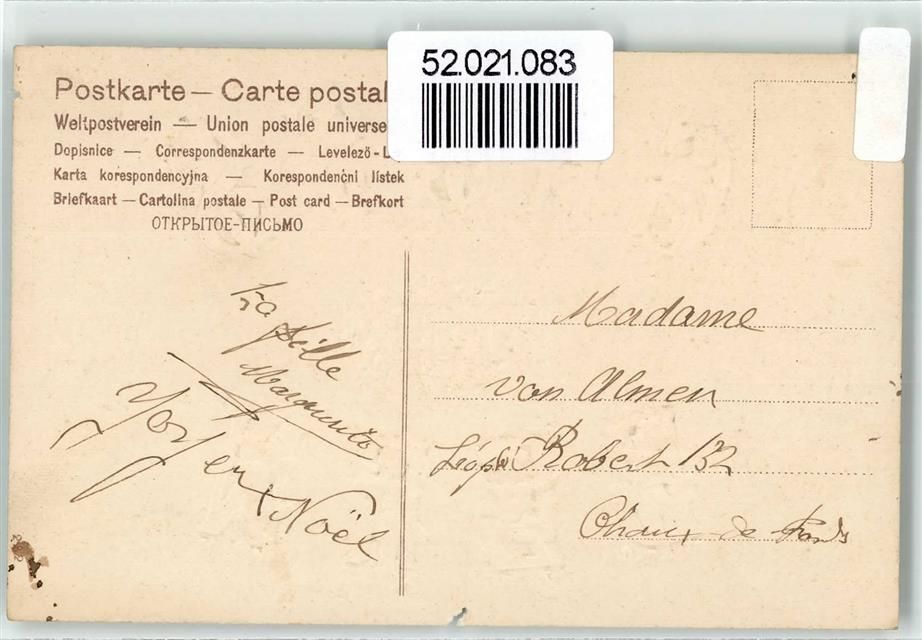 52.021.083
Postkarte — Carte postal
Weltpostverein — Union postale universe
Dopisnice — Correspondenzkarte — Levelező-L
Karta korespondencyjna — Korespondenčni listek
Briefkaart — Cartolina postale — Post card — Brefkort
ОТКРЫТОЕ-ПИСЬМО
ta fille
Marguerite
Joyeux Noël
Madame
von Almen
Léopd Robert 132
Chaux de Fonds